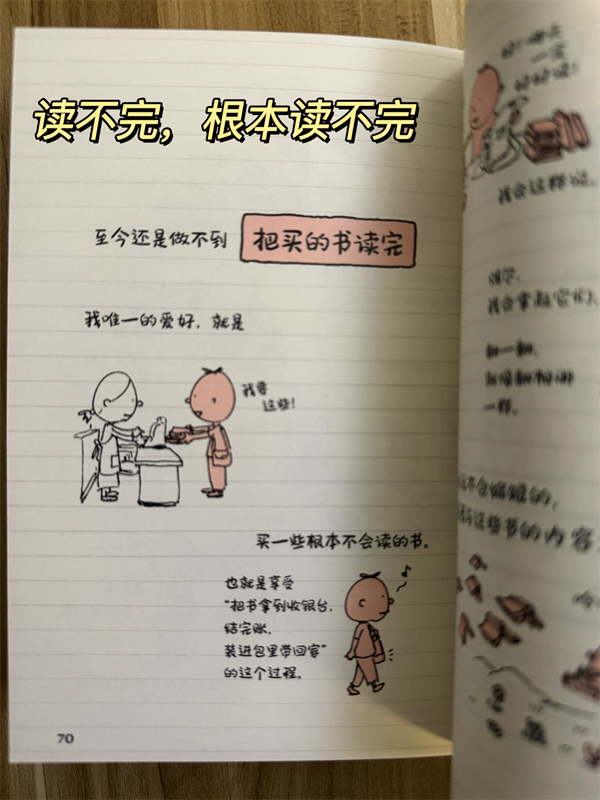 读不完，根本读不完
至今还是做不到 把买的书读完
我唯一的爱好，就是
我要
这些!
买一些根本不会读的书。
也就是享受
“把书拿到收银台，
结完账，
装进包里带回家”
的这个过程。
70
一定
好好读!
我会这样说。
偶尔，
我会拿起它们，
翻一翻，
一样。
这些书的内容